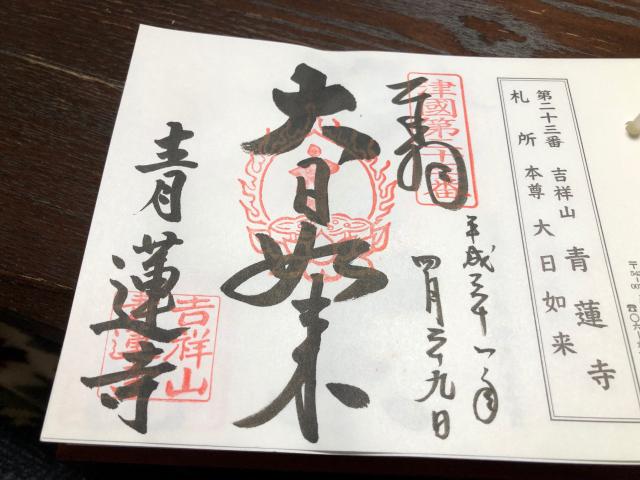 第二十三番 吉祥山 青蓮寺
札所本尊 大日如来
津國第
番
奉
平成三十一年
四月二十九日
大日如来
青蓮寺
吉祥山
青蓮